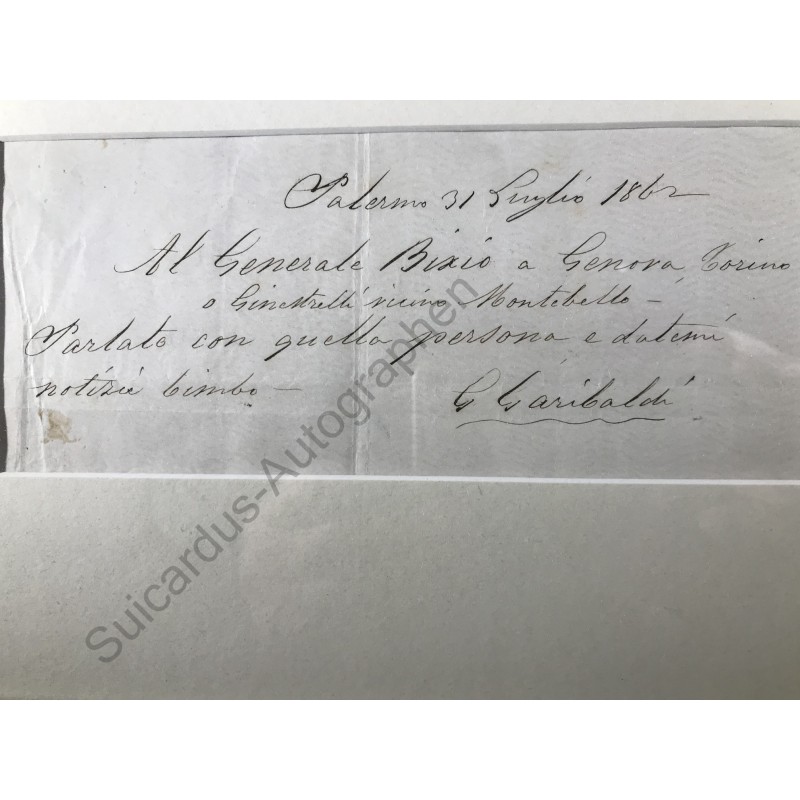 Palermo 31 Luglio 1862
Al Generale Bixio a Genova, Torino
o Ginestrelli vicino Montebello –
Parlato con quella persona e datemi
notizie bimbo –
G Garibaldi
Suicardus-Autographen